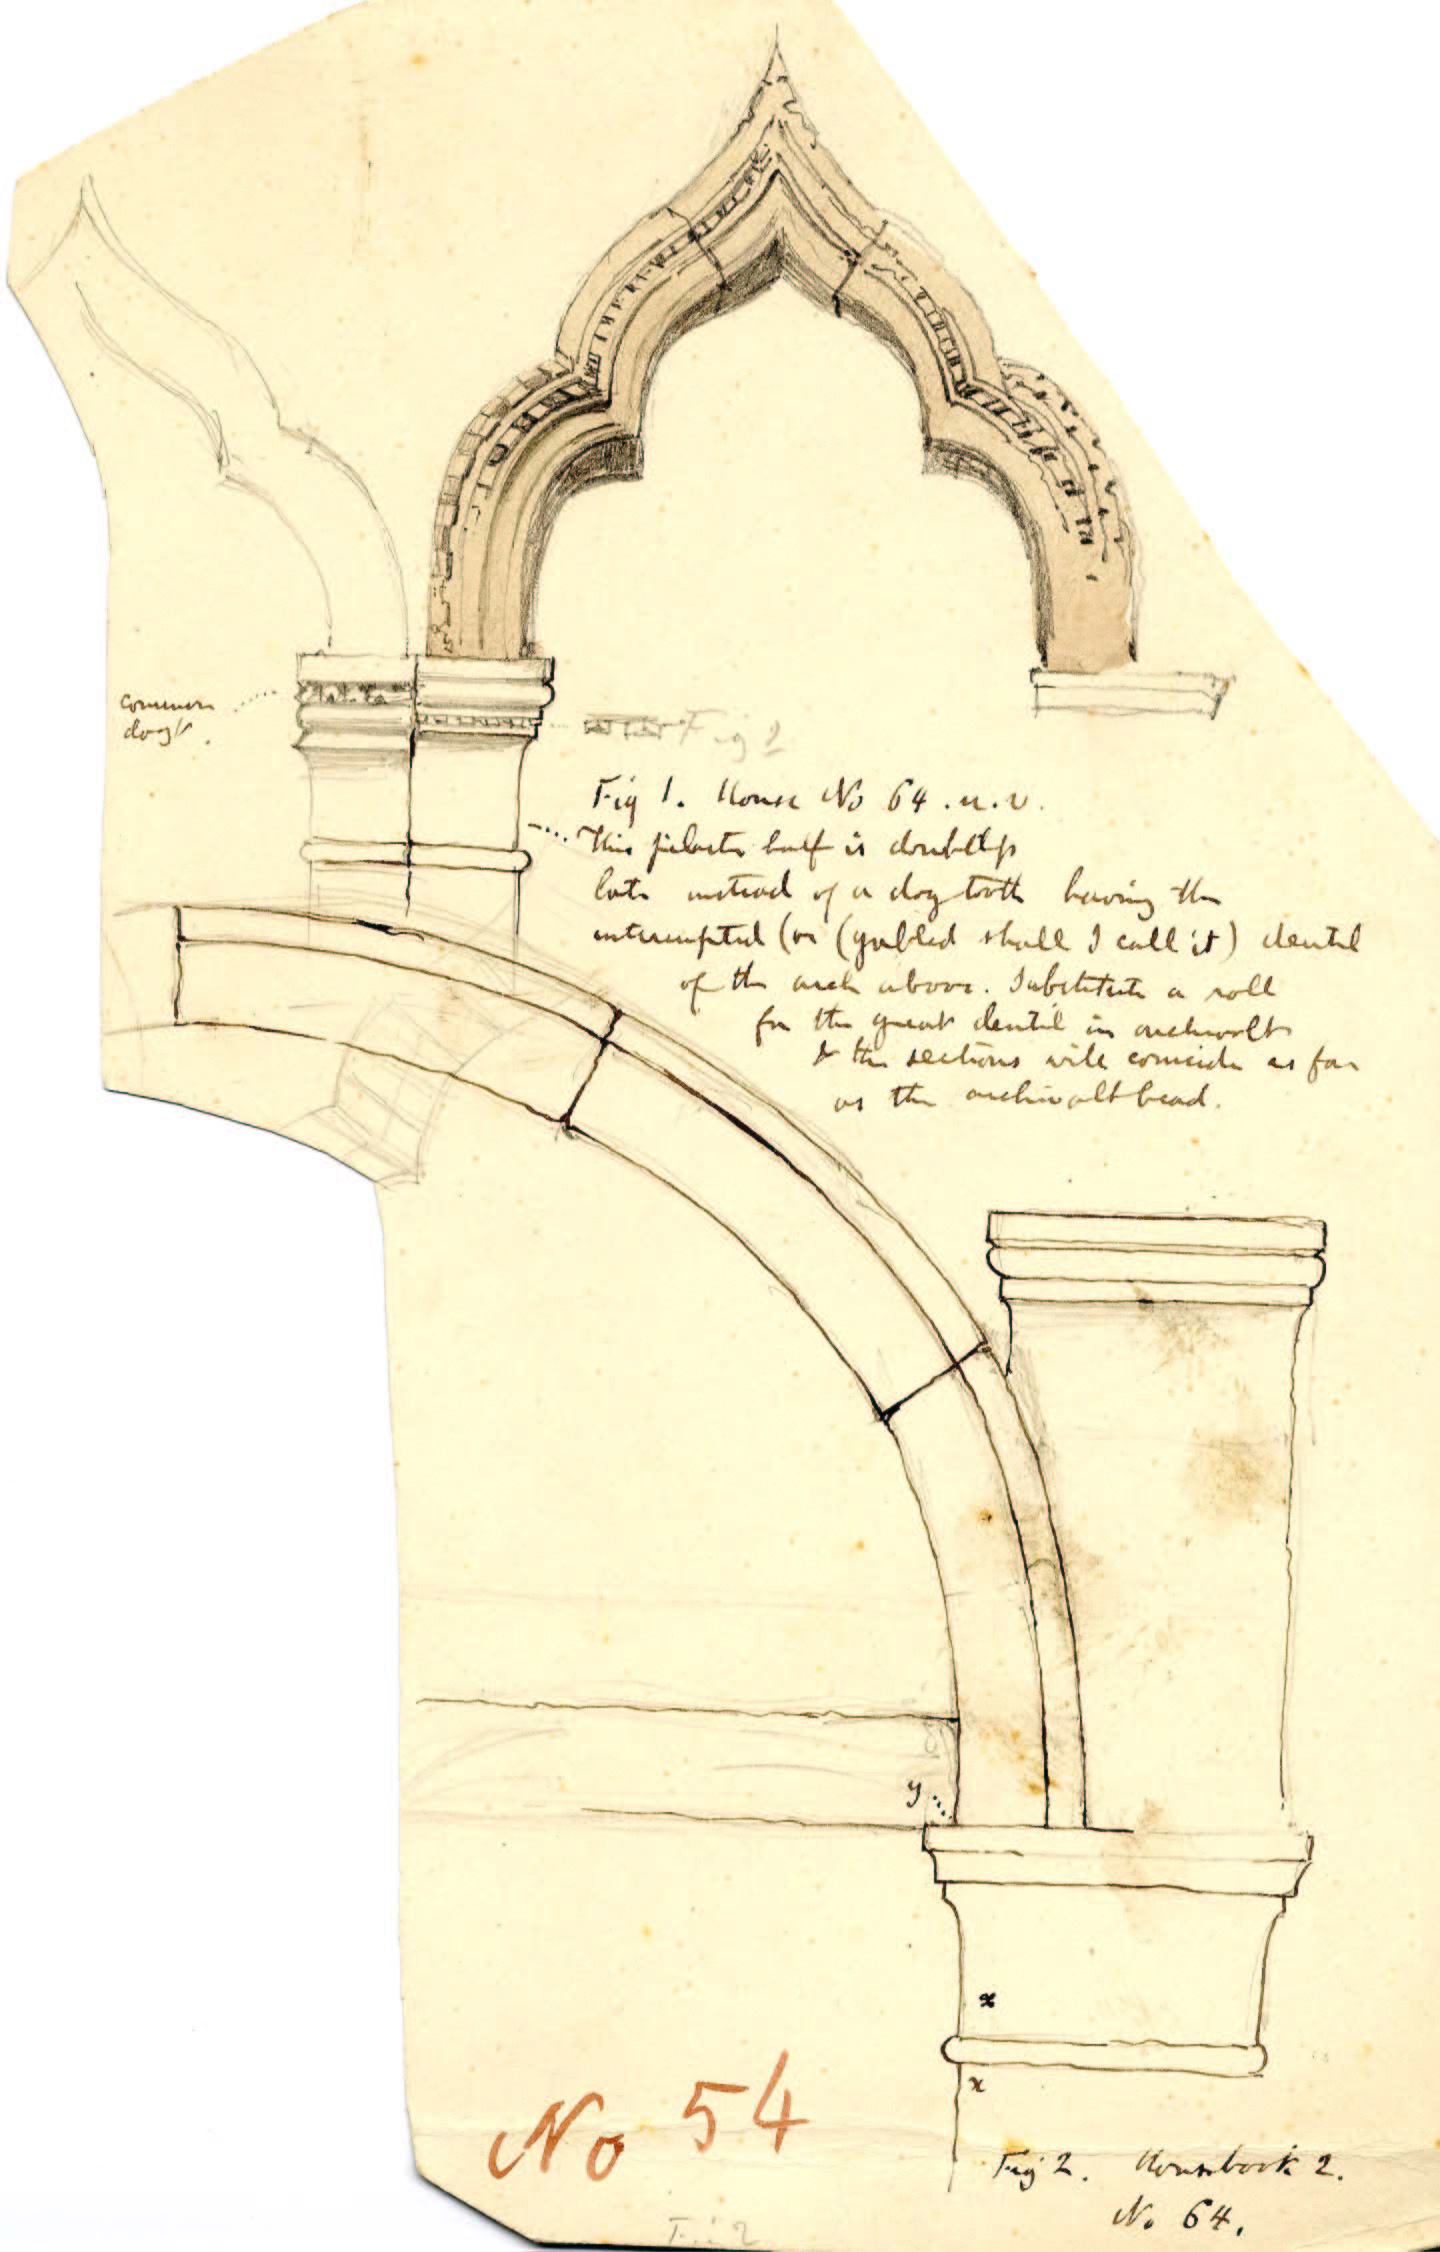 common
dogt.
Fig 2
Fig 1. House No 64. n. v.
This pilaster half is doubtless
late instead of a dog tooth having the
interrupted (or (gabled shall I call it) dentil
of the arch above. Substitute a roll
for the great dentil in archivolt
& the sections will coincide as far
as the archivolt bead.
y
x
x
No 54
Fig 2. Housebook 2.
No 64.
Fig 2